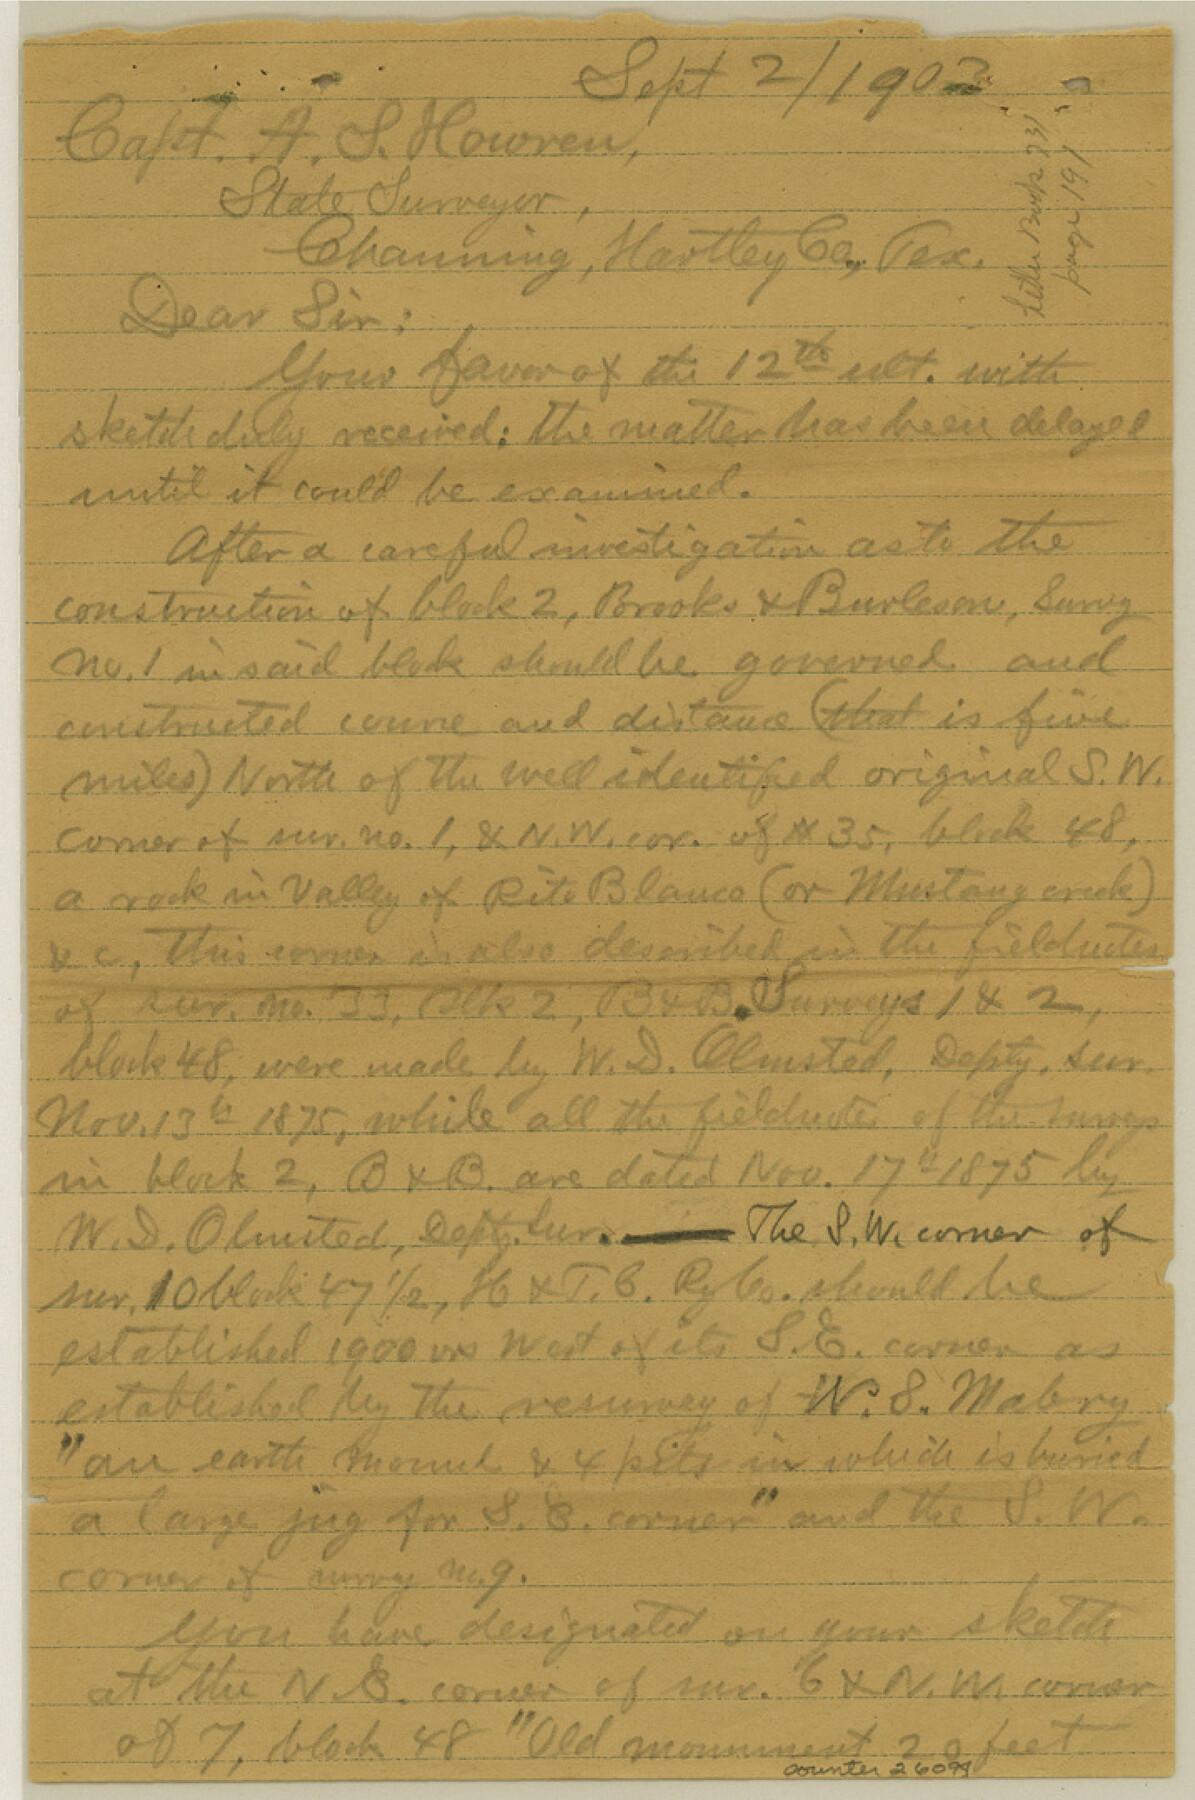 Sept 2/1903
Letter Book 231
page 191
Capt. A. S. Howren,
State Surveyor,
Channing, Hartley Co., Tex.
Dear Sir:
Your favor of the 12th ult. with
sketch duly received; the matter has been delayed
until it could be examined.
After a careful investigation as to the
construction of block 2, Brooks & Burleson, Survey
no. 1 in said block should be governed and
constructed course and distance (that is five
miles) North of the well identified original S.W.
corner of sur. no. 1, & N.W. cor. of # 35, block 48,
a rock in Valley of Rito Blanco (or Mustang creek)
&c, this corner is also described in the fieldnotes
of sur. no. 33, Blk 2, B & B. Surveys 1 & 2,
block 48, were made by W. D. Olmsted, Depty. sur.
Nov. 13th 1875, while all the fieldnotes of the surveys
in block 2, B & B. are dated Nov. 17th 1875 by
W. D. Olmsted, Depty. Sur. The S.W. corner of
sur. 10 block 47 1/2, H & T. C. Ry Co. should be
established 1900 vrs West of its S.E. corner as
established by the resurvey of W. S. Mabry
"an earth mound & 4 pits in which is buried
a large jug for S.E. corner" and the S. W.
corner of survey no. 9.
You have designated on your sketch
at the N.E. corner of sur. 6 & N.W. corner
of 7, block 48 "Old monument 20 feet
counter 26099